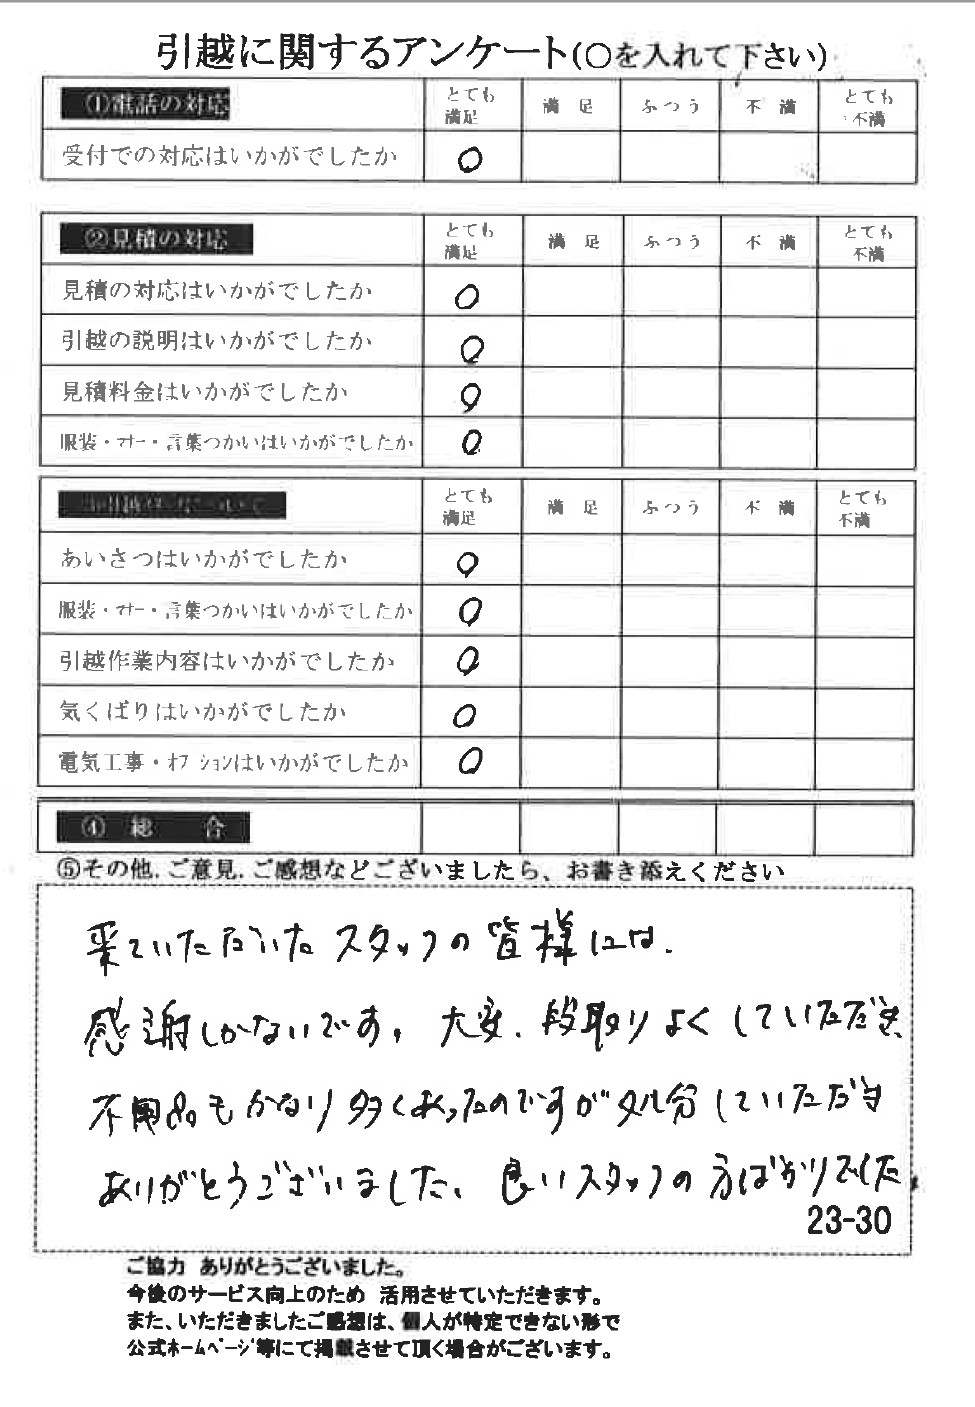 引越に関するアンケート(○を入れて下さい)
①電話の対応 とても満足 満足 ふつう 不満 とても不満
受付での対応はいかがでしたか ○
②見積の対応 とても満足 満足 ふつう 不満 とても不満
見積の対応はいかがでしたか ○
引越の説明はいかがでしたか ○
見積料金はいかがでしたか ○
服装・マナー・言葉つかいはいかがでしたか ○
とても満足 満足 ふつう 不満 とても不満
あいさつはいかがでしたか ○
服装・マナー・言葉つかいはいかがでしたか ○
引越作業内容はいかがでしたか ○
気くばりはいかがでしたか ○
電気工事・オプションはいかがでしたか ○
④ 総 合
⑤その他、ご意見、ご感想などございましたら、お書き添えください
来ていただいたスタッフの皆様には、
感謝しかないです。大変、段取りよくしていただき、
不用品もかなり多くあったのですが処分していただき
ありがとうございました、良いスタッフの方ばかりでした。
23-30
ご協力 ありがとうございました。
今後のサービス向上のため 活用させていただきます。
また、いただきましたご感想は、個人が特定できない形で
公式ホームページ等にて掲載させて頂く場合がございます。